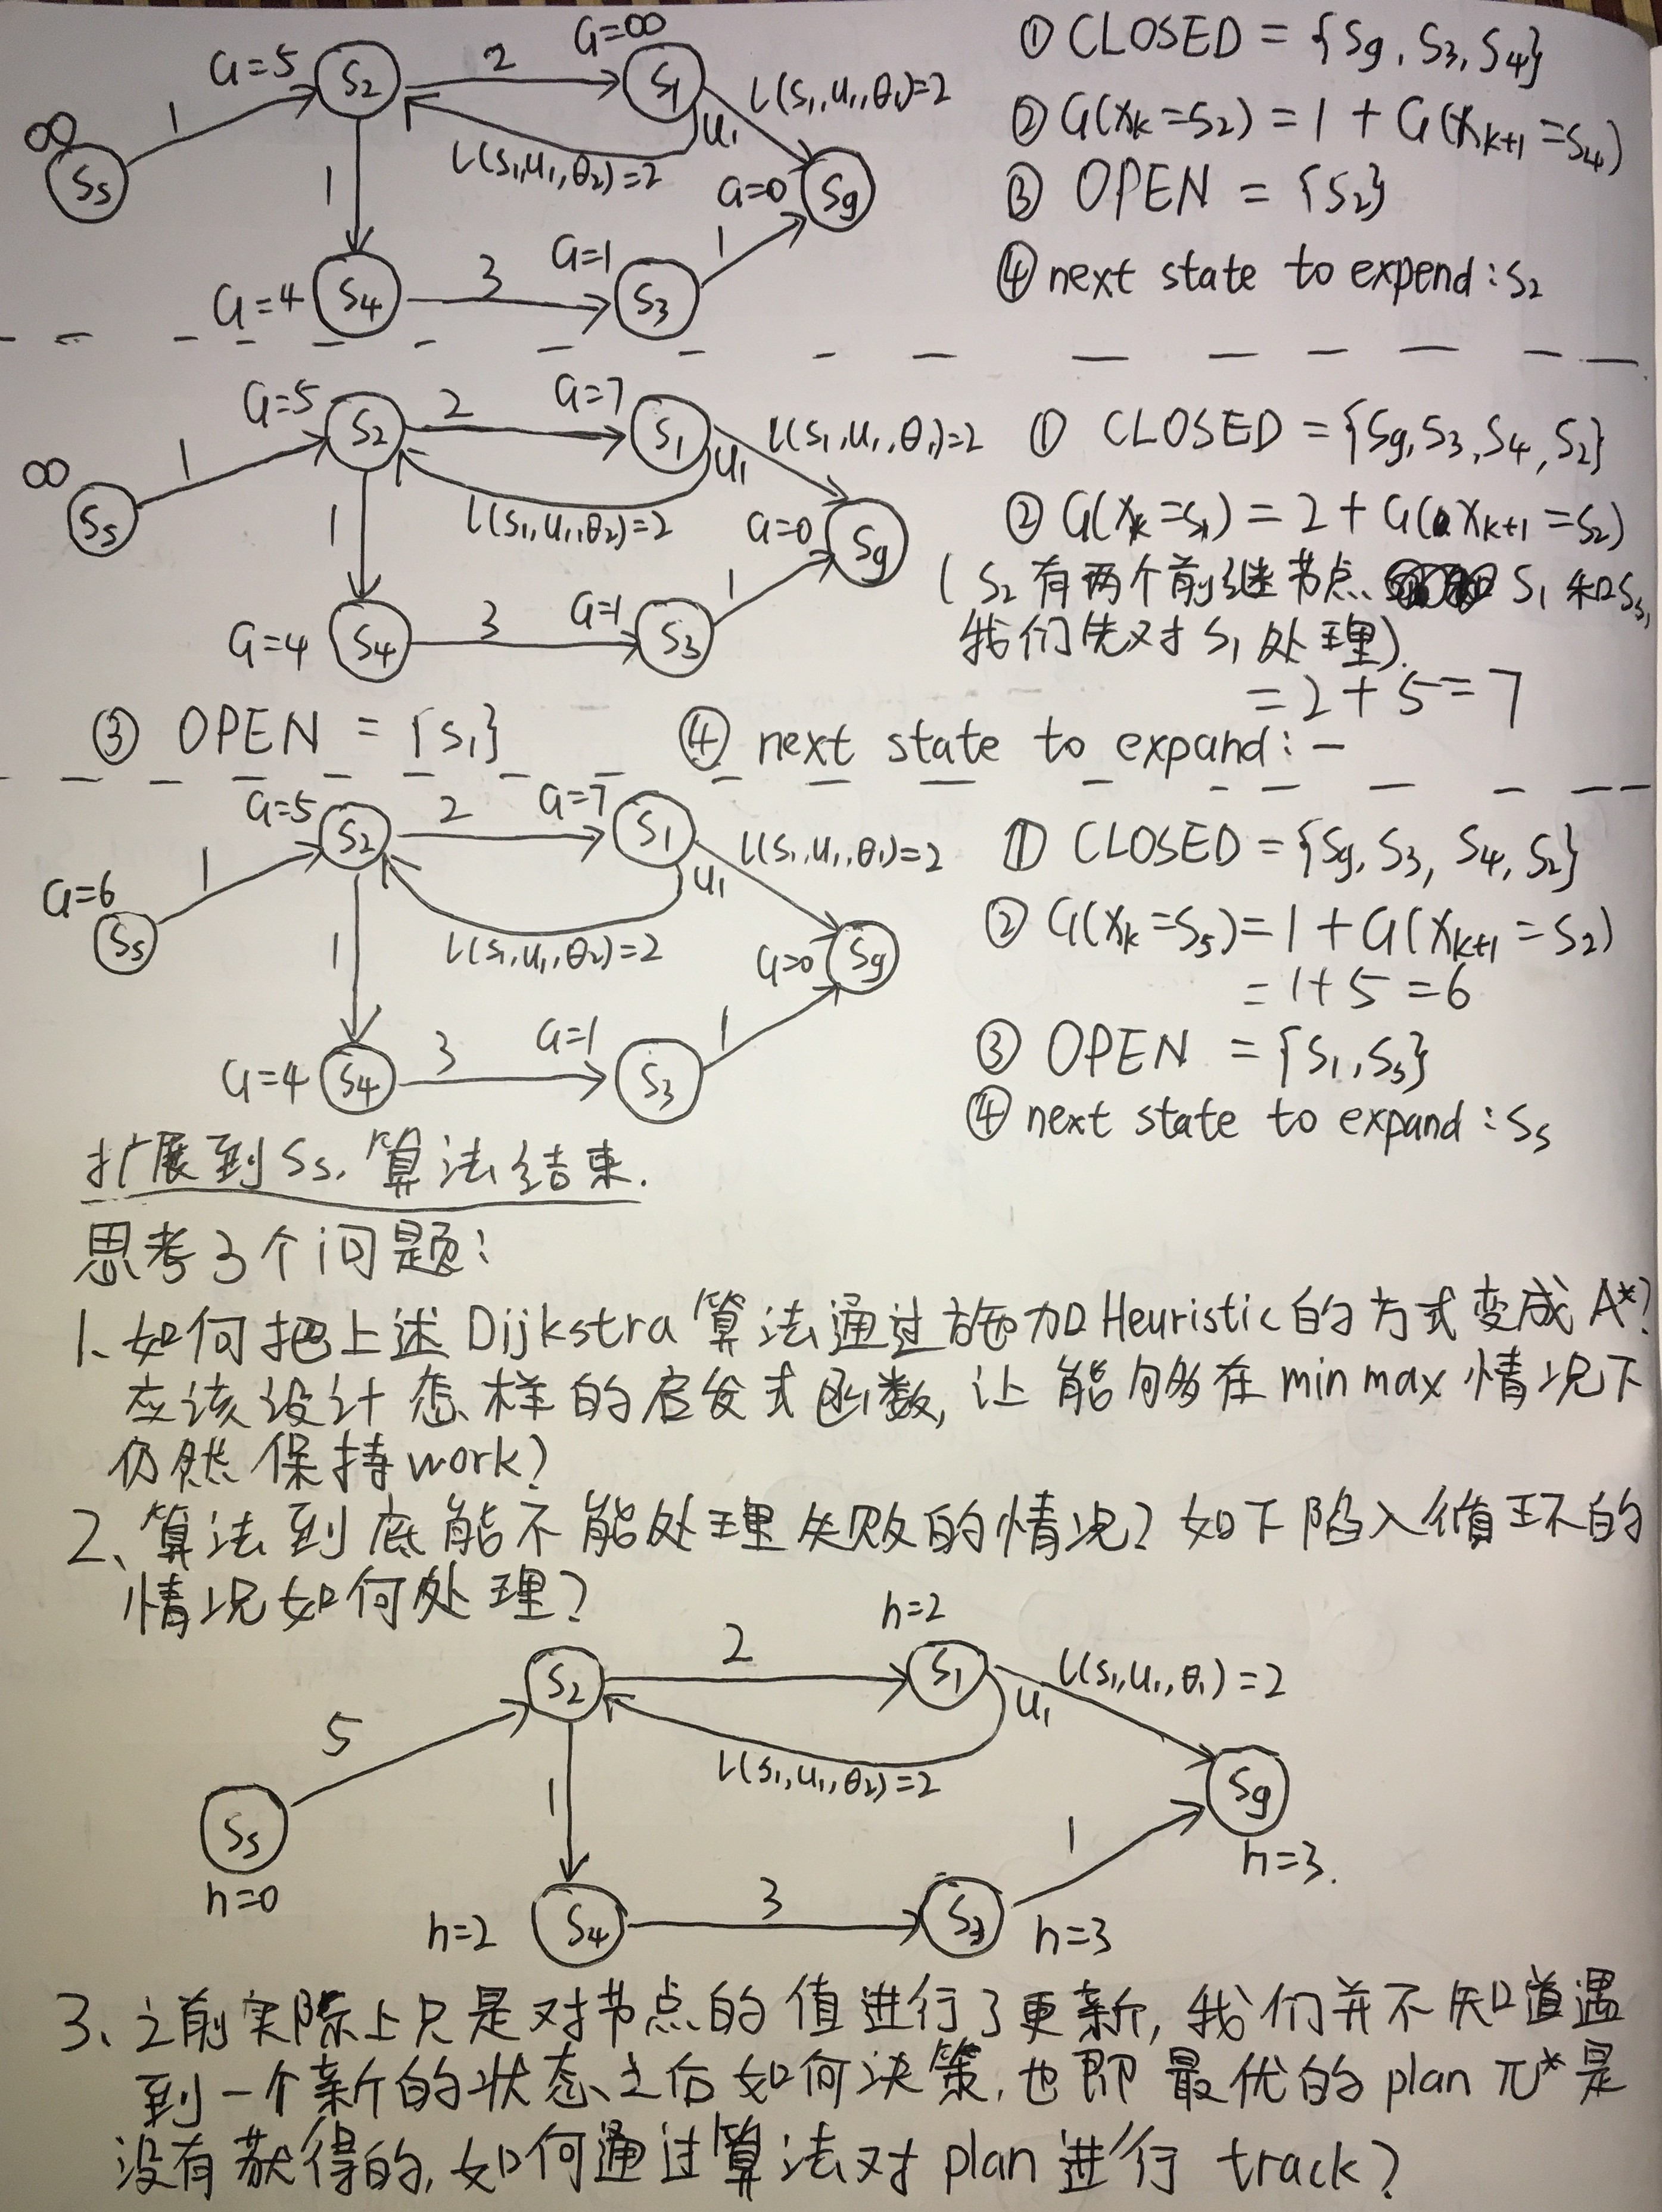 G=5 S2 2 G=∞ S1 L(S1,u1,θ1)=2
∞ SS 1 L(S1,u1,θ2)=2 u1
1 G=0 Sg
G=4 S4 3 G=1 S3 1
① CLOSED = {Sg, S3, S4}
② G(xk=S2) = 1 + G(xk+1=S4)
③ OPEN = {S2}
④ next state to expend: S2
G=5 S2 2 G=7 S1 L(S1,u1,θ1)=2
∞ SS 1 L(S1,u1,θ2)=2 u1
1 G=0 Sg
G=4 S4 3 G=1 S3 1
① CLOSED = {Sg, S3, S4, S2}
② G(xk=S1) = 2 + G(xk+1=S2)
(S2有两个前继节点 S1和Ss,
我们先对S1处理).
= 2+5=7
③ OPEN = {S1}
④ next state to expand: —
G=5 S2 2 G=7 S1 L(S1,u1,θ1)=2
G=6 Ss 1 L(S1,u1,θ2)=2 u1
1 G=0 Sg
G=4 S4 3 G=1 S3 1
① CLOSED = {Sg, S3, S4, S2}
② G(xk=Ss)=1+G(xk+1=S2)
= 1+5=6
③ OPEN = {S1, Ss}
④ next state to expand: Ss
扩展到Ss,算法结束.
思考3个问题:
1、如何把上述Dijkstra算法通过施加Heuristic的方式变成A*?
应该设计怎样的启发式函数,让能够在min max情况下
仍然保持work?
2、算法到底能不能处理失败的情况?如下陷入循环的
情况如何处理?
S2 2 h=2 S1 L(S1,u1,θ1)=2
5 u1
Ss 1 L(S1,u1,θ2)=2 Sg
h=0 1 h=3.
h=2 S4 3 S3 h=3
3、之前实际上只是对节点的值进行了更新,我们并不知道遇
到一个新的状态之后如何决策,也即最优的plan π*是
没有获得的,如何通过算法对plan进行track?